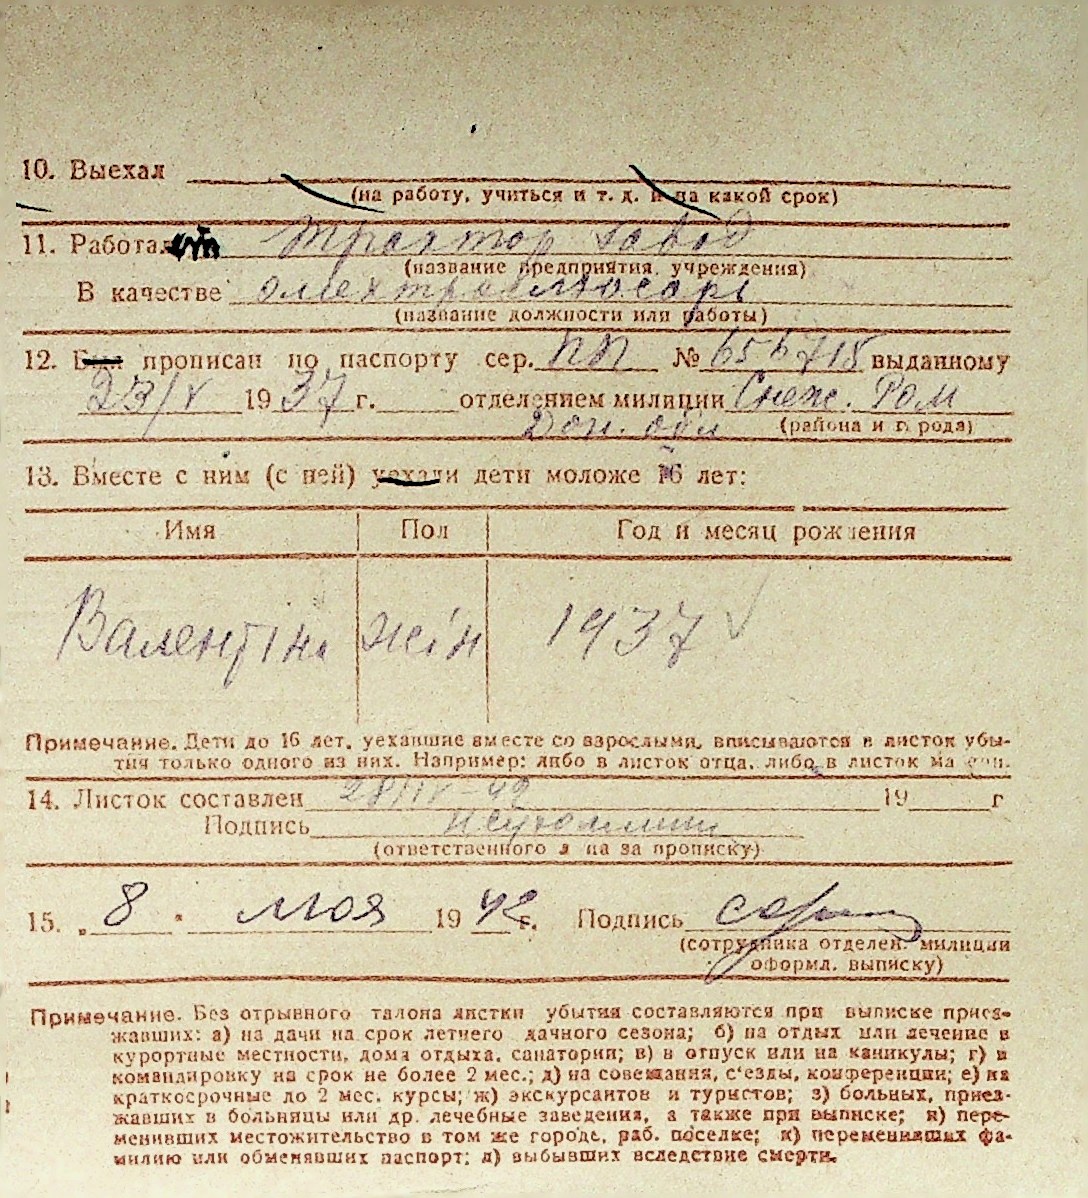 10. Выехал
(на работу, учиться и т. д. и на какой срок)
11. Работает Трактор Завод
(название предприятия, учреждения)
В качестве
(название должности или работы)
12. Был прописан по паспорту сер. ПП № 656718 выданному
23/V 1937 г. отделением милиции Снеж. Ром
Дон. обл (района и города)
13. Вместе с ним (с ней) уехали дети моложе 16 лет:
Имя Пол Год и месяц рождения
Валентіна жін 1937
Примечание. Дети до 16 лет, уехавшие вместе со взрослыми, вписываются в листок убы-
тия только одного из них. Например: либо в листок отца, либо в листок матери.
14. Листок составлен 28/IV-42 19 г
Подпись
(ответственного лица за прописку)
15. „8" мая 1942 г. Подпись
(сотрудника отделен. милиции
оформл. выписку)
Примечание. Без отрывного талона листки убытия составляются при выписке приез-
жавших: а) на дачи на срок летнего дачного сезона; б) на отдых или лечение в
курортные местности, дома отдыха, санатории; в) в отпуск или на каникулы; г) в
командировку на срок не более 2 мес.; д) на совещания, с'езды, конференции; е) на
краткосрочные до 2 мес. курсы; ж) экскурсантов и туристов; з) больных, приез-
жавших в больницы или др. лечебные заведения, а также при выписке; и) пере-
менивших местожительство в том же городе, раб. поселке; к) переменивших фа-
милию или обменявших паспорт; л) выбывших вследствие смерти.